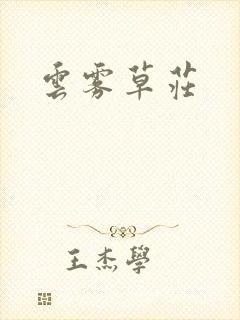 雲霧草莊
王杰學